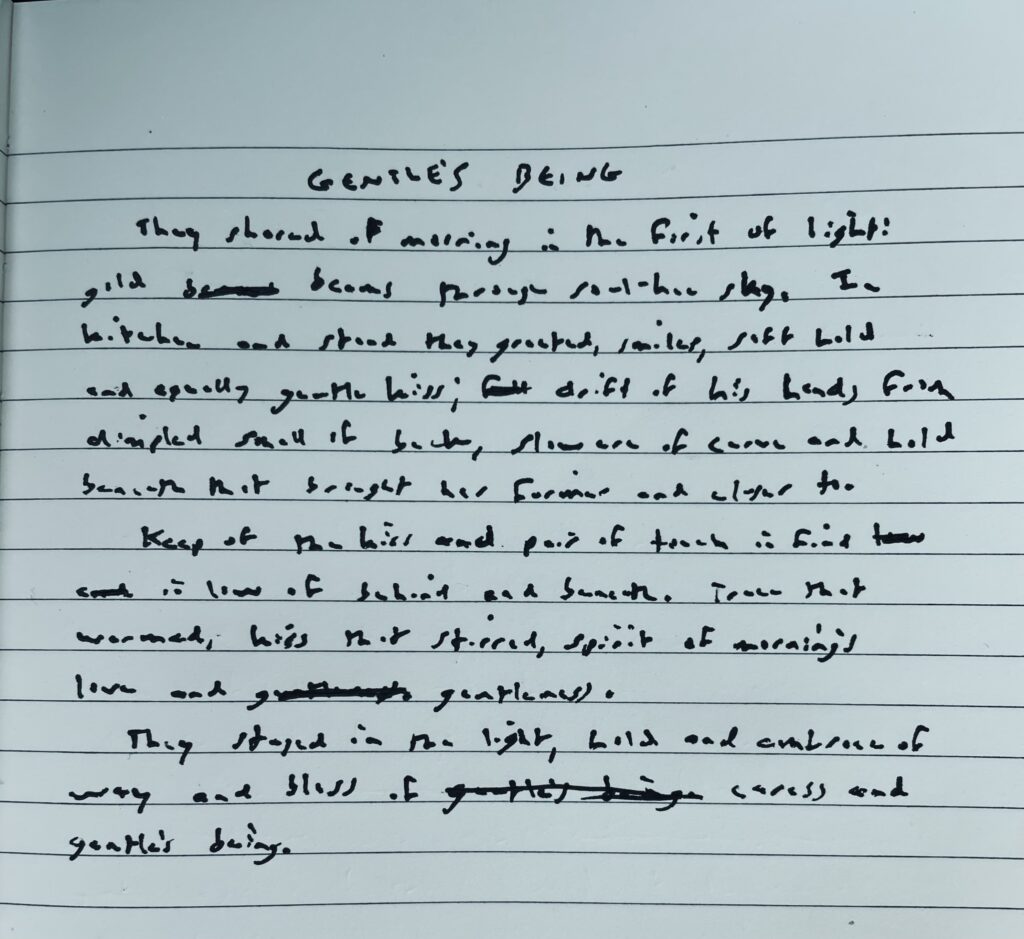 GENTLE'S BEING
They shared of morning in the first of light:
gild beams through soul-hue sky. In
kitchen and stood they greeted, smiles, soft hold
and equally gentle kiss; drift of his hands from
dimpled small of back, slow arc of curve and hold
beneath that brought her former and closer to.
Keep of the kiss and pair of touch in find
in low of behind and beneath. Trace that
warmed, kiss that stirred, spirit of morning's
love and gentleness.
They stayed in the light, hold and embrace of
way and bless of caress and
gentle's being.